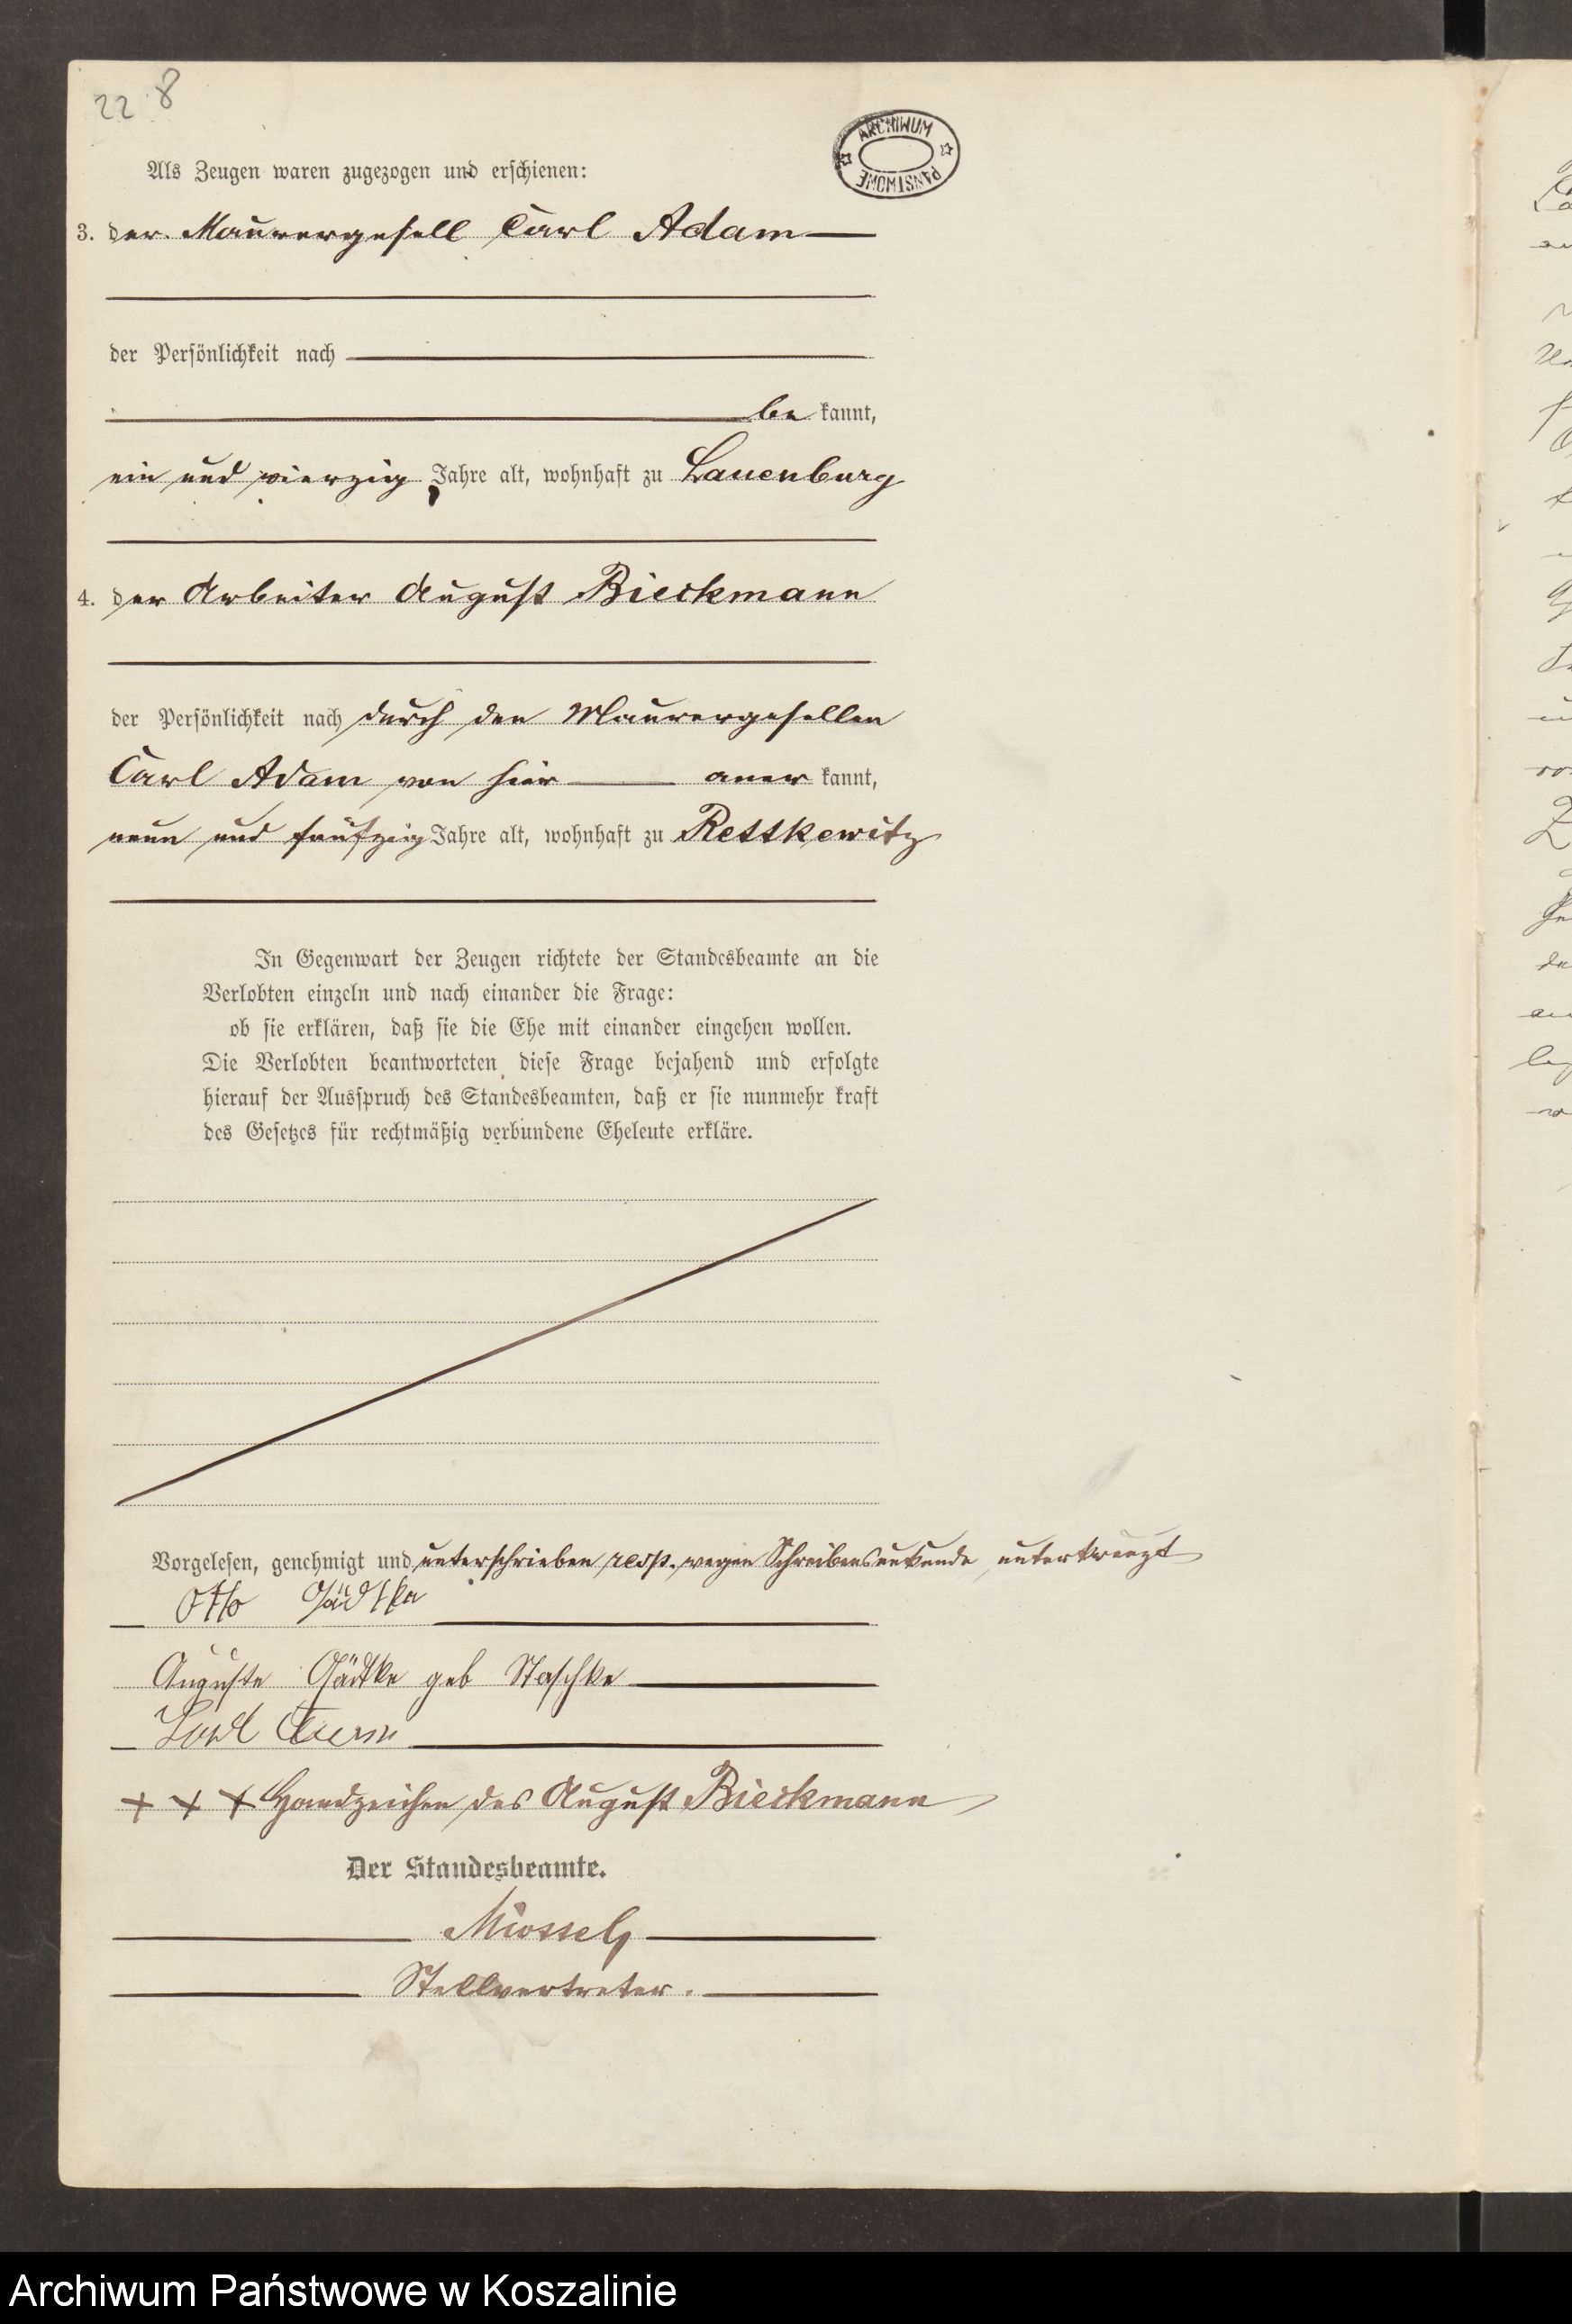 22 8
ARCHIWUM PAŃSTWOWE
Als Zeugen waren zugezogen und erschienen:
3. der Maurergesell Carl Adam
der Persönlichkeit nach
be kannt,
ein und vierzig Jahre alt, wohnhaft zu Lauenburg
4. der Arbeiter August Bieckmann
der Persönlichkeit nach durch den Maurergesellen
Carl Adam von hier aner kannt,
neun und fünfzig Jahre alt, wohnhaft zu Rettkewitz
In Gegenwart der Zeugen richtete der Standesbeamte an die
Verlobten einzeln und nach einander die Frage:
ob sie erklären, daß sie die Ehe mit einander eingehen wollen.
Die Verlobten beantworteten diese Frage bejahend und erfolgte
hierauf der Ausspruch des Standesbeamten, daß er sie nunmehr kraft
des Gesetzes für rechtmäßig verbundene Eheleute erkläre.
Vorgelesen, genehmigt und unterschrieben resp. wegen Schreibensunkunde unterkreuzt
Otto Gädtke
Auguste Gädtke geb Staschke
+ + + Handzeichen des August Bieckmann
Der Standesbeamte.
Stellvertreter.
Archiwum Państwowe w Koszalinie